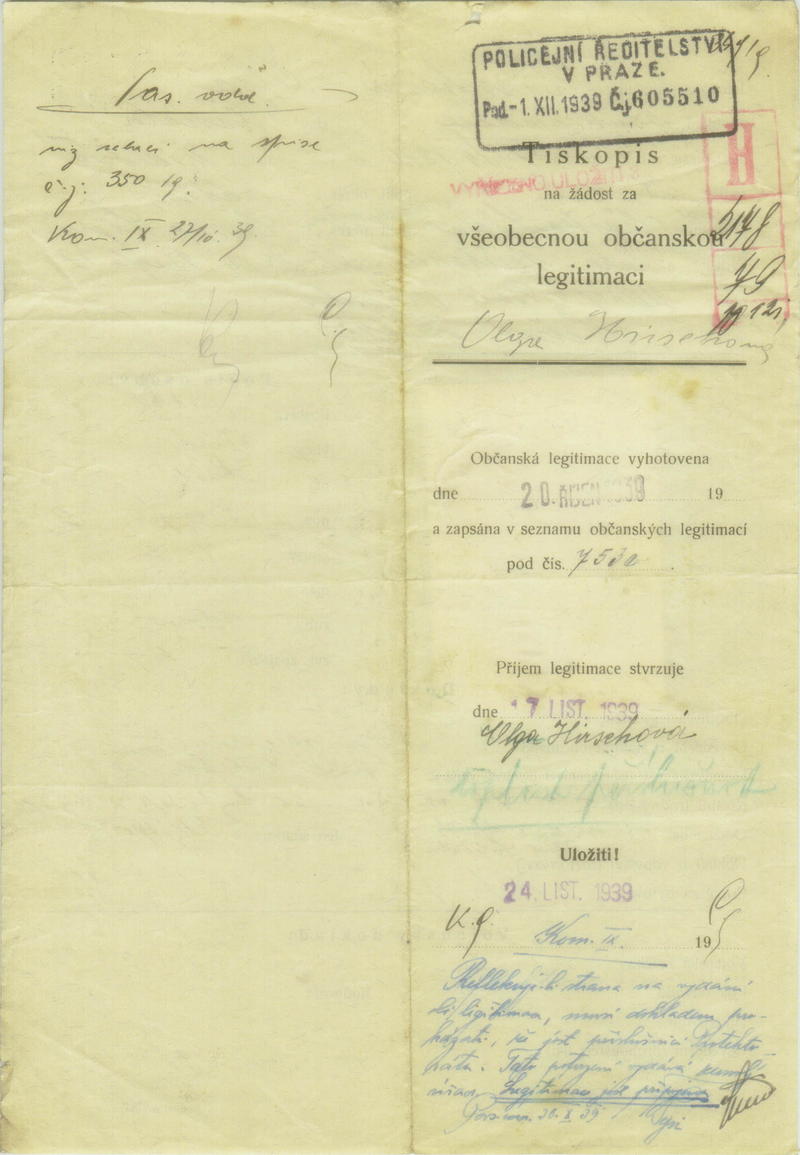 Pas. odd.
na spise
č.j: 350 19.
Kom. IX 27/10. 39.
POLICEJNÍ ŘEDITELSTVÍ
V PRAZE.
Pod. -1. XII. 1939 Čj 605510
H
Tiskopis
na žádost za
všeobecnou občanskou
legitimaci
Olga Hirschová
Občanská legitimace vyhotovena
dne 20. ŘÍJEN 1939 19
a zapsána v seznamu občanských legitimací
pod čís.
Příjem legitimace stvrzuje
dne 17 LIST. 1939
Olga Hirschová
Uložiti!
24. LIST. 1939
Kom. IX.
19
Reflektuje-li strana na vydání
legitimace, musí dokladem pro-
kázati, že jest příslušnicí Protekto-
rátu. Toto potvrzení vydává
Legitimace jest připojena
30. X 39